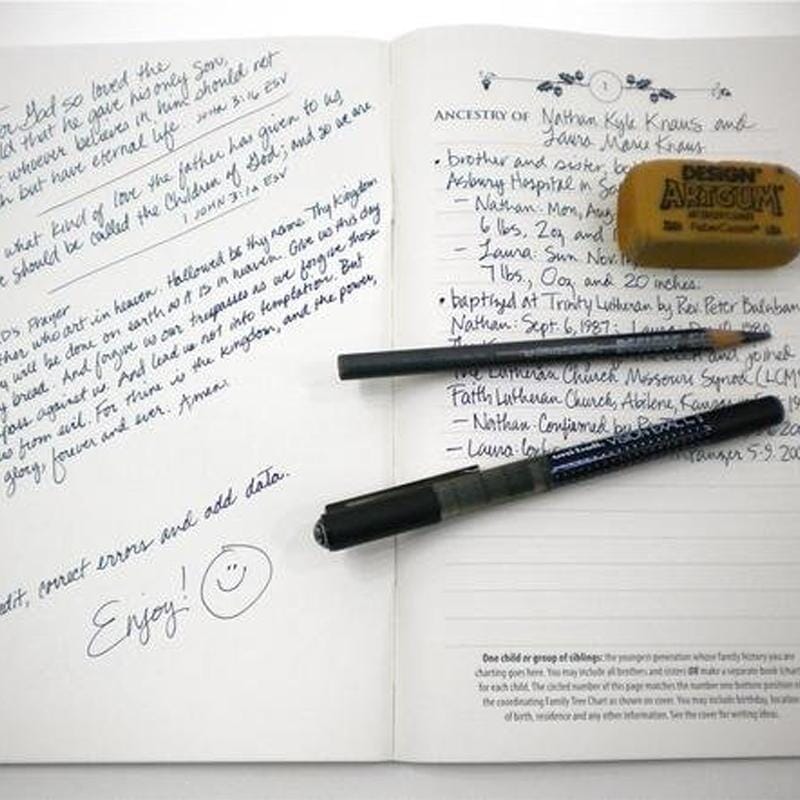 or God so loved the
ld that he gave his only Son,
t whoever believes in him should not
h but have eternal life John 3:16 ESV
what kind of love the father has given to us,
e should be called the Children of God; and so we are.
1 JOHN 3:1a ESV
D's Prayer
ther who art in heaven. Hallowed be thy name. Thy Kingdom
y will be done on earth as it is in heaven. Give us this day
y bread. And forgive us our trespasses as we forgive those
pass against us. And lead us not into temptation. But
us from evil. For thine is the kingdom, and the power,
glory, forever and ever. Amen.
edit, correct errors and add data.
Enjoy!
1
ANCESTRY OF Nathan Kyle Kraus and
Laura Marie Kraus
• brother and sister, bo
Asbury Hospital in Sa
– Nathan: Mon, Aug
6 lbs, 2oz and
– Laura: Sun Nov.
7 lbs, 0oz and 20 inches.
• baptized at Trinity Lutheran by Rev. Peter Burnham
Nathan: Sept. 6, 1987; Laura
and joined
The Lutheran Church Missouri Synod (LCMS
Faith Lutheran Church, Abilene, Kansas
– Nathan: Confirmed by
– Laura: 5-9-200
DESIGN
ARTGUM
FaberCastell
One child or group of siblings: the youngest generation whose family history you are
charting goes here. You may include all brothers and sisters OR make a separate book (chart
for each child. The circled number of this page matches the number one bottom position
the coordinating Family Tree Chart as shown on cover. You may include birthday, location
of birth, residence and any other information. See the cover for writing ideas.